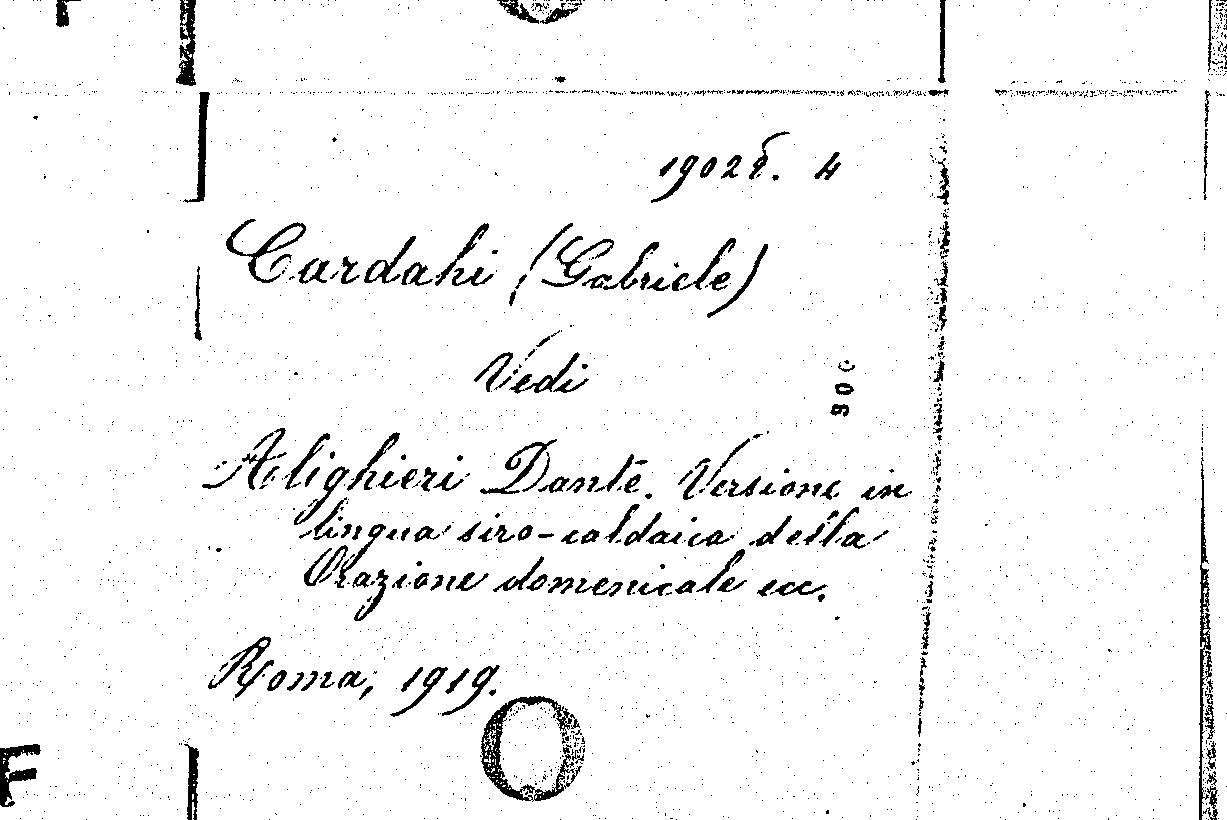 19028. 4
Cardahi (Gabriele)
Vedi
Alighieri Dante. Versione in
lingua siro-caldaica della
Orazione domenicale ecc.
Roma, 1919.
F